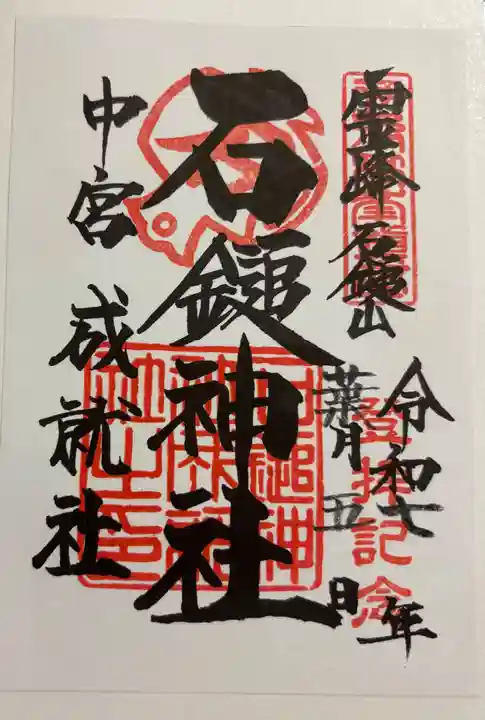 霊峰 石鎚山
登拝記念
令和七年
葉月五日
石鎚神社
中宮 成就社